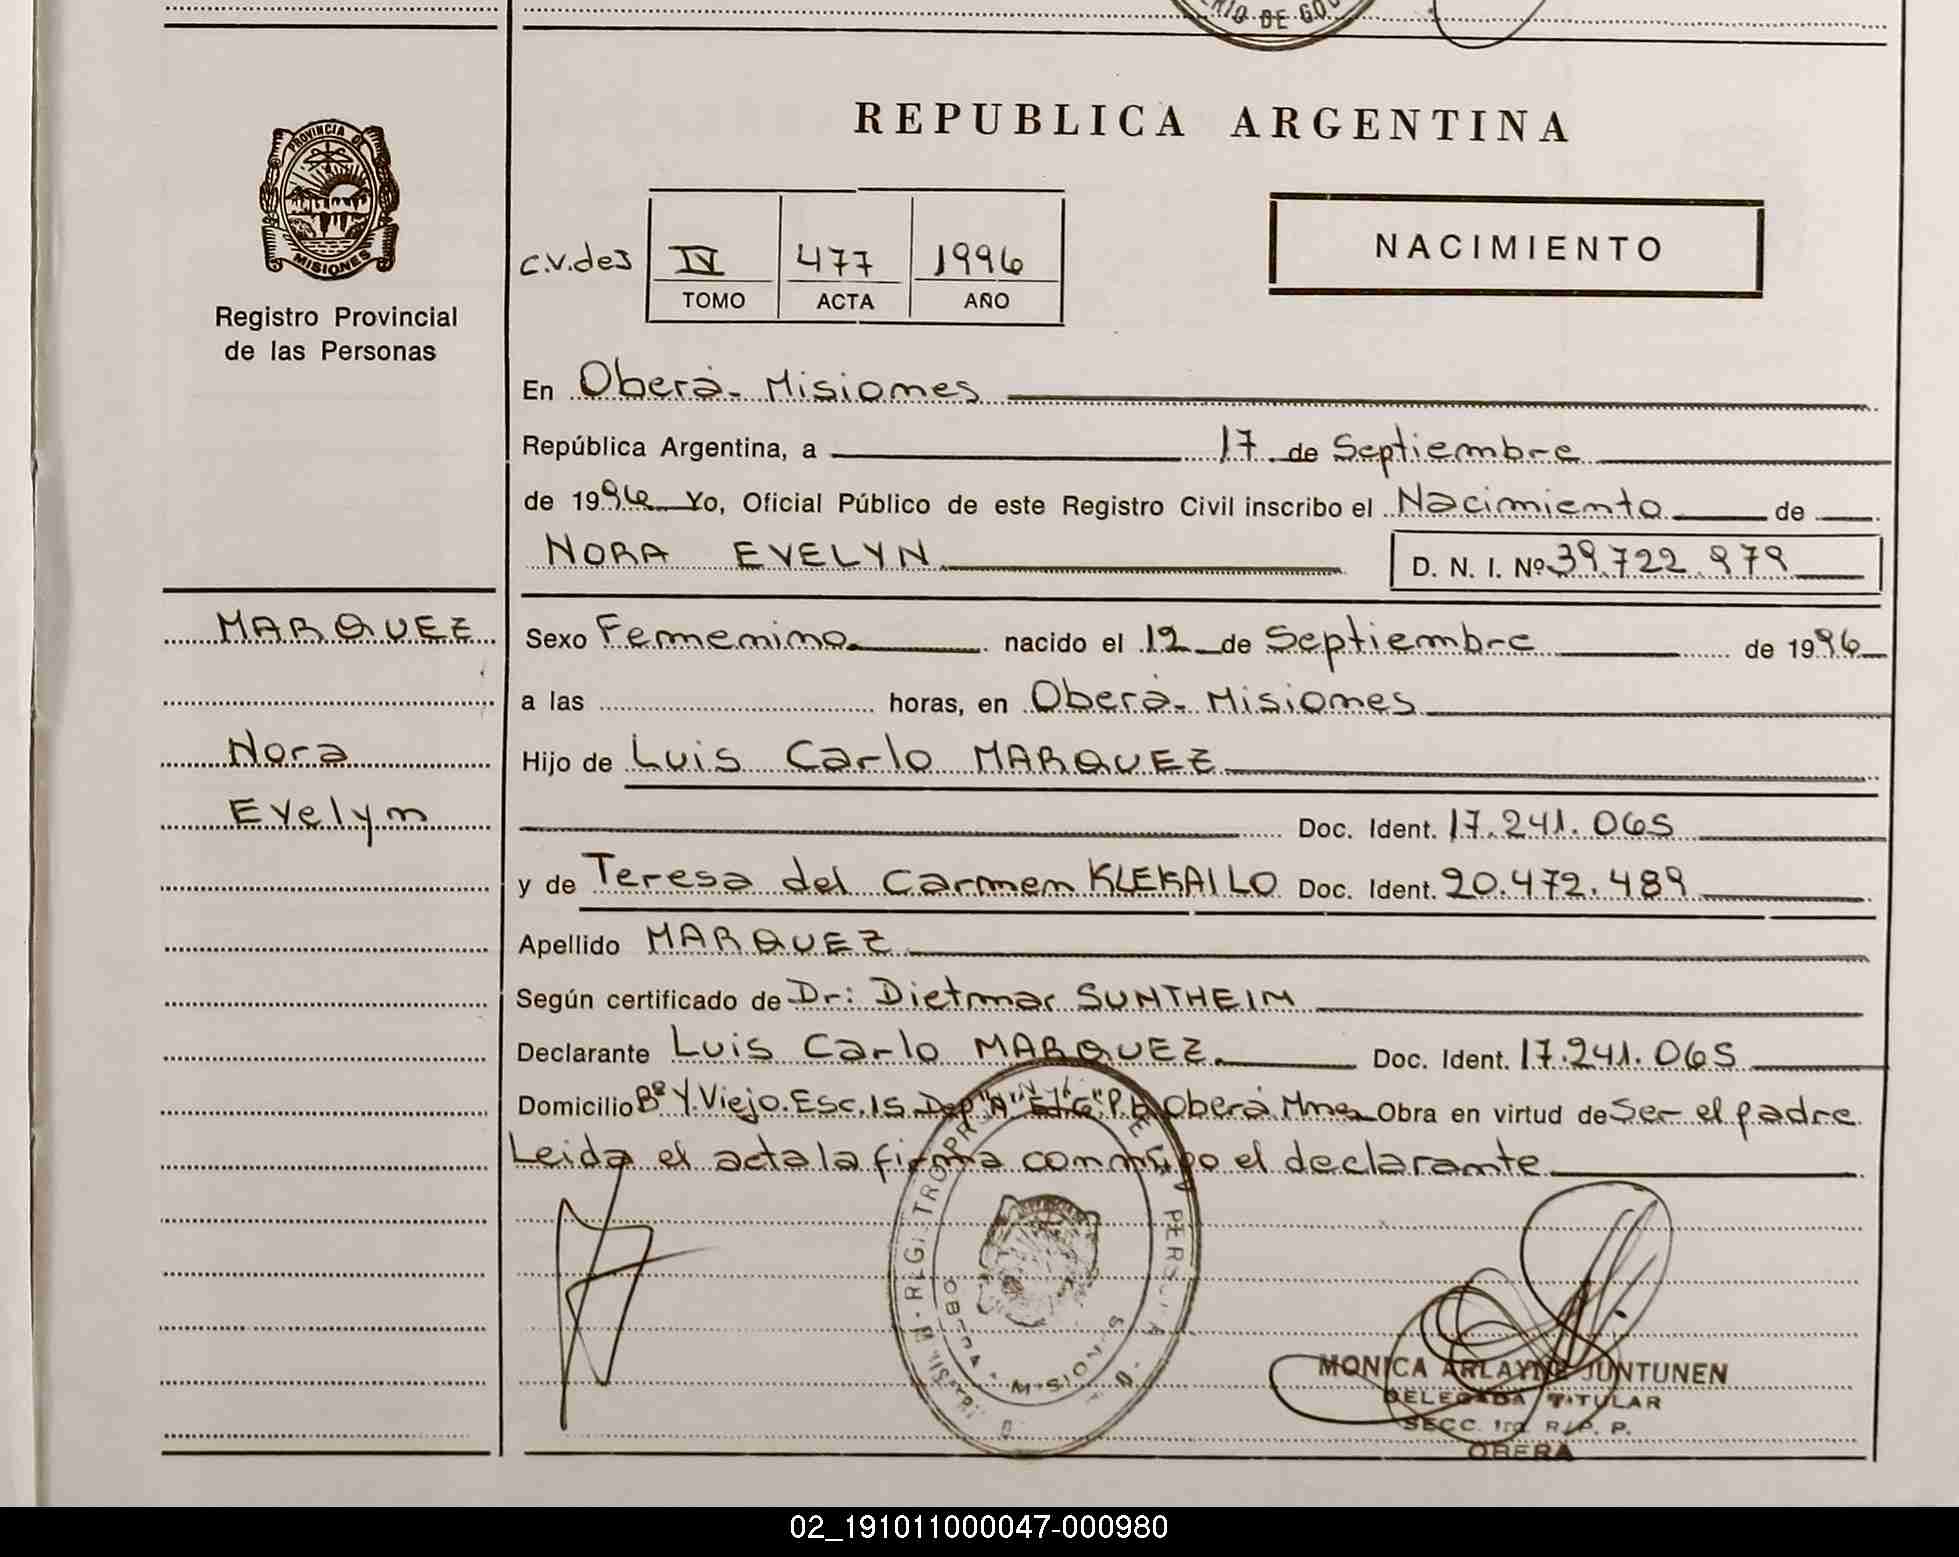 RIO DE GOB
PROVINCIA DE
MISIONES
Registro Provincial
de las Personas
REPUBLICA ARGENTINA
NACIMIENTO
c.v.des IV 477 1996
TOMO ACTA AÑO
En Oberà- Misiones
República Argentina, a 17 de Septiembre
de 1996 Yo, Oficial Público de este Registro Civil inscribo el Nacimiento de
NORA EVELYN D. N. I. Nº 39.722.979
MARQUEZ
Nora
Evelyn
Sexo Femenino nacido el 12 de Septiembre de 1996
a las horas, en Oberà- Misiones
Hijo de Luis Carlo MARQUEZ
Doc. Ident. 17.241.065
y de Teresa del Carmen KLEKAILO Doc. Ident. 20.472.489
Apellido MARQUEZ
Según certificado de Dr: Dietmar SUNTHEIM
Declarante Luis Carlo MARQUEZ Doc. Ident. 17.241.065
Domicilio Bº Y. Viejo. Esc. 15. Dep "A" Oberà Mnes Obra en virtud de Ser el padre
Leida el acta la firma conmigo el declarante
OBERA MISIONES
MONICA ARLAYNE JUNTUNEN
DELEGADA TITULAR
SECC. 1ra R. P. P.
OBERA
02_191011000047-000980